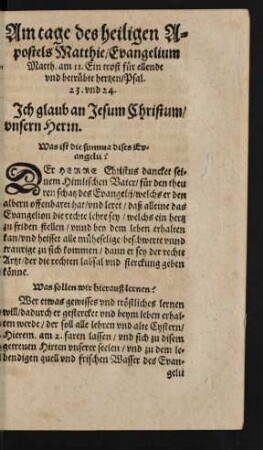 Am tage des heiligen A-
postels Matthie/Evangelium
Matth. am 11. Ein trost für ellende
vnd betrübte hertzen/Psal.
23. vnd 24.
Ich glaub an Jesum Christum/
vnsern Herrn.
Was ist die summa dises Ev-
angelii?
DEr HERRE Christus dancket sei-
nem Himlischen Vater/für den theu
ren schatz des Evangelij/welchs er den
albern offenbaret hat/vnd leret/daß alleine das
Evangelion die rechte lehre sey/welchs ein hertz
zu friden stellen/vnnd bey dem leben erhalten
kan/vnd heisset alle müheselige beschwerte vnnd
traurige zu sich kommen/dann er sey der rechte
Artzt/der die rechten labsal vnd sterckung geben
könne.
Was sollen wir hierauß lernen?
Wer etwas gewisses vnd tröstliches lernen
will/dadurch er gestercket vnd beym leben erhal-
ten werde/der soll alle lehren vnd alte Cystern/
Hierem. am 2. faren lassen/vnd sich zu disem
getreuen Hirten vnserer seelen/vnd zu dem le-
bendigen quell vnd frischen Wasser des Evan-
gelii